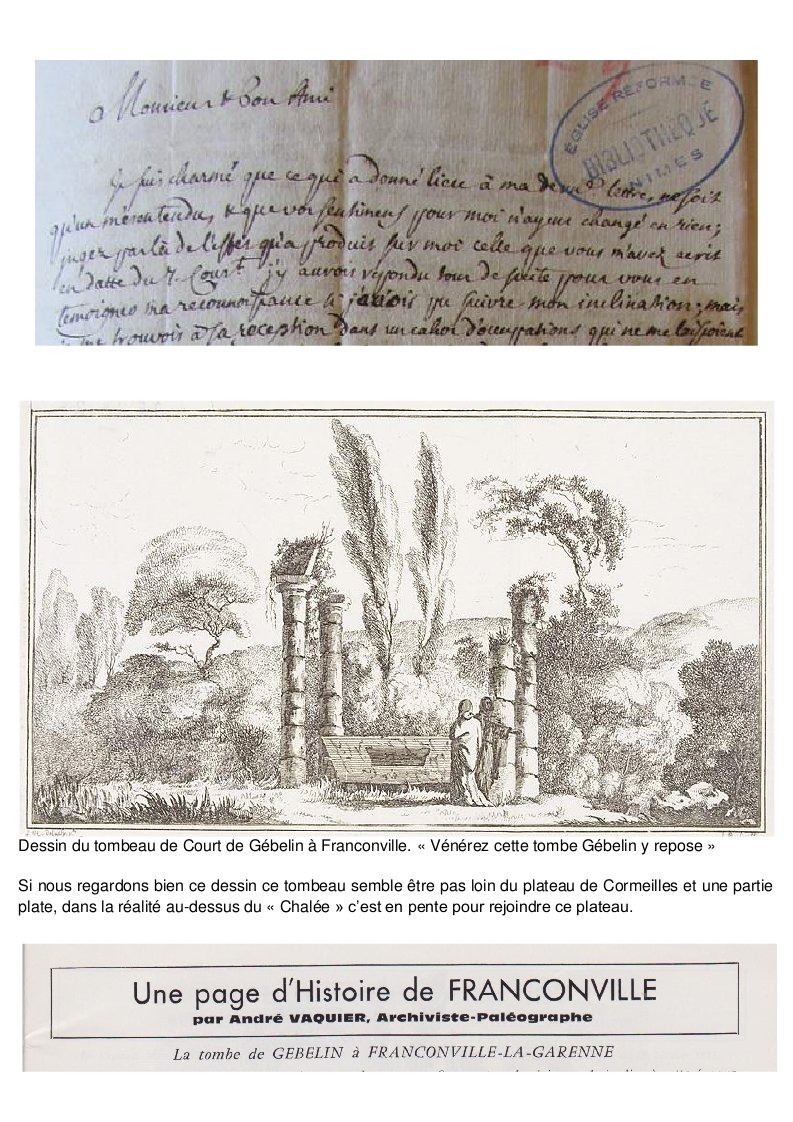 Monsieur & bon Ami
ÉGLISE RÉFORMÉE
BIBLIOTHÈQUE
NIMES
Je suis charmé que ce qui a donné lieu à ma lettre, ne soit
qu'un mésentendu, & que vos sentimens pour moi n'ayent changé en rien;
jugez par là de l'effet qu'a produit sur moi celle que vous m'avez écrit
en datte du 7. Cour.t j'y aurois répondu tout de suite pour vous en
ma reconnoissance si j'avois pu suivre mon inclination; mais
trouvois à sa réception dans un cahos d'occupations qui ne me
Dessin du tombeau de Court de Gébelin à Franconville. « Vénérez cette tombe Gébelin y repose »
Si nous regardons bien ce dessin ce tombeau semble être pas loin du plateau de Cormeilles et une partie
plate, dans la réalité au-dessus du « Chalée » c'est en pente pour rejoindre ce plateau.
Une page d'Histoire de FRANCONVILLE
par André VAQUIER, Archiviste-Paléographe
La tombe de GEBELIN à FRANCONVILLE-LA-GARENNE